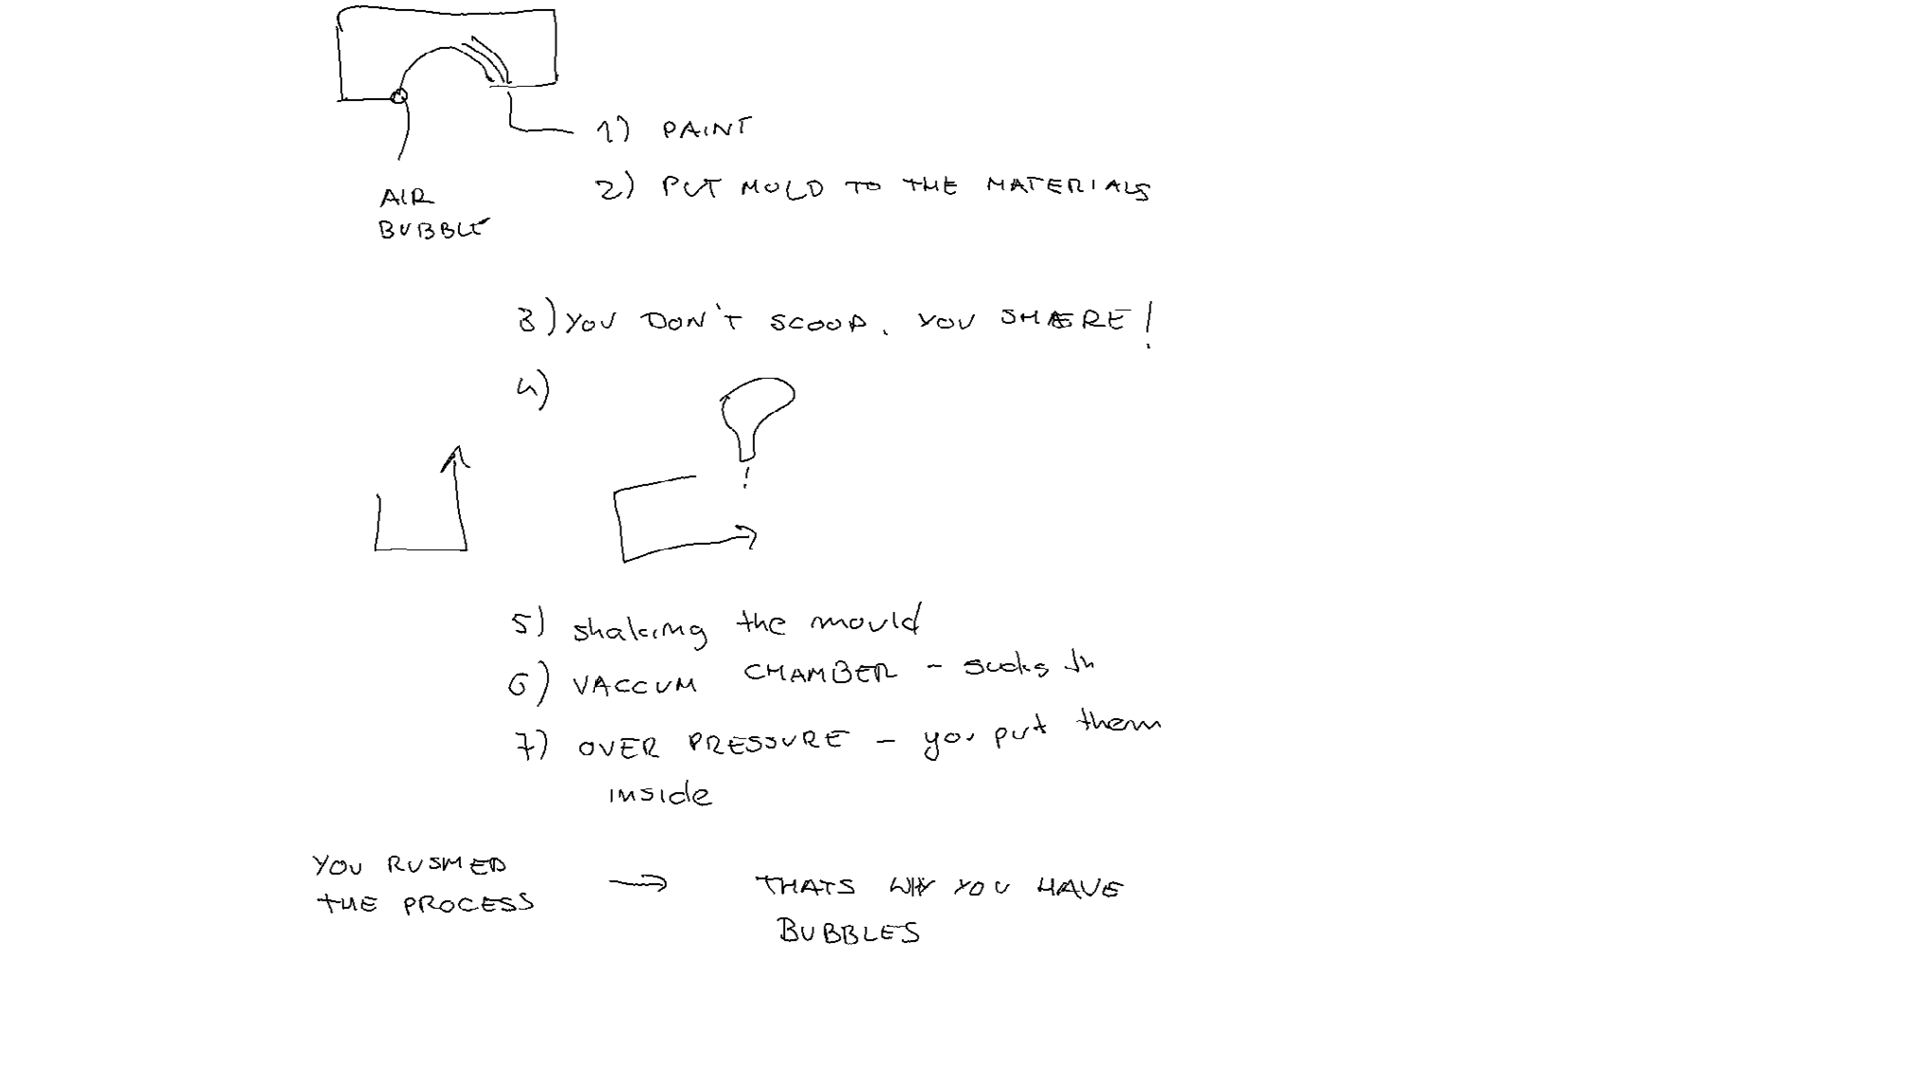 1) PAINT
2) PUT MOLD TO THE MATERIALS
AIR
BUBBLE
3) YOU DON'T SCOOP. YOU SHARE!
4)
5) shaking the mould
6) VACCUM CHAMBER - sucks in
7) OVER PRESSURE - you put them
inside
YOU RUSHED
THE PROCESS
→ THATS WHY YOU HAVE
BUBBLES